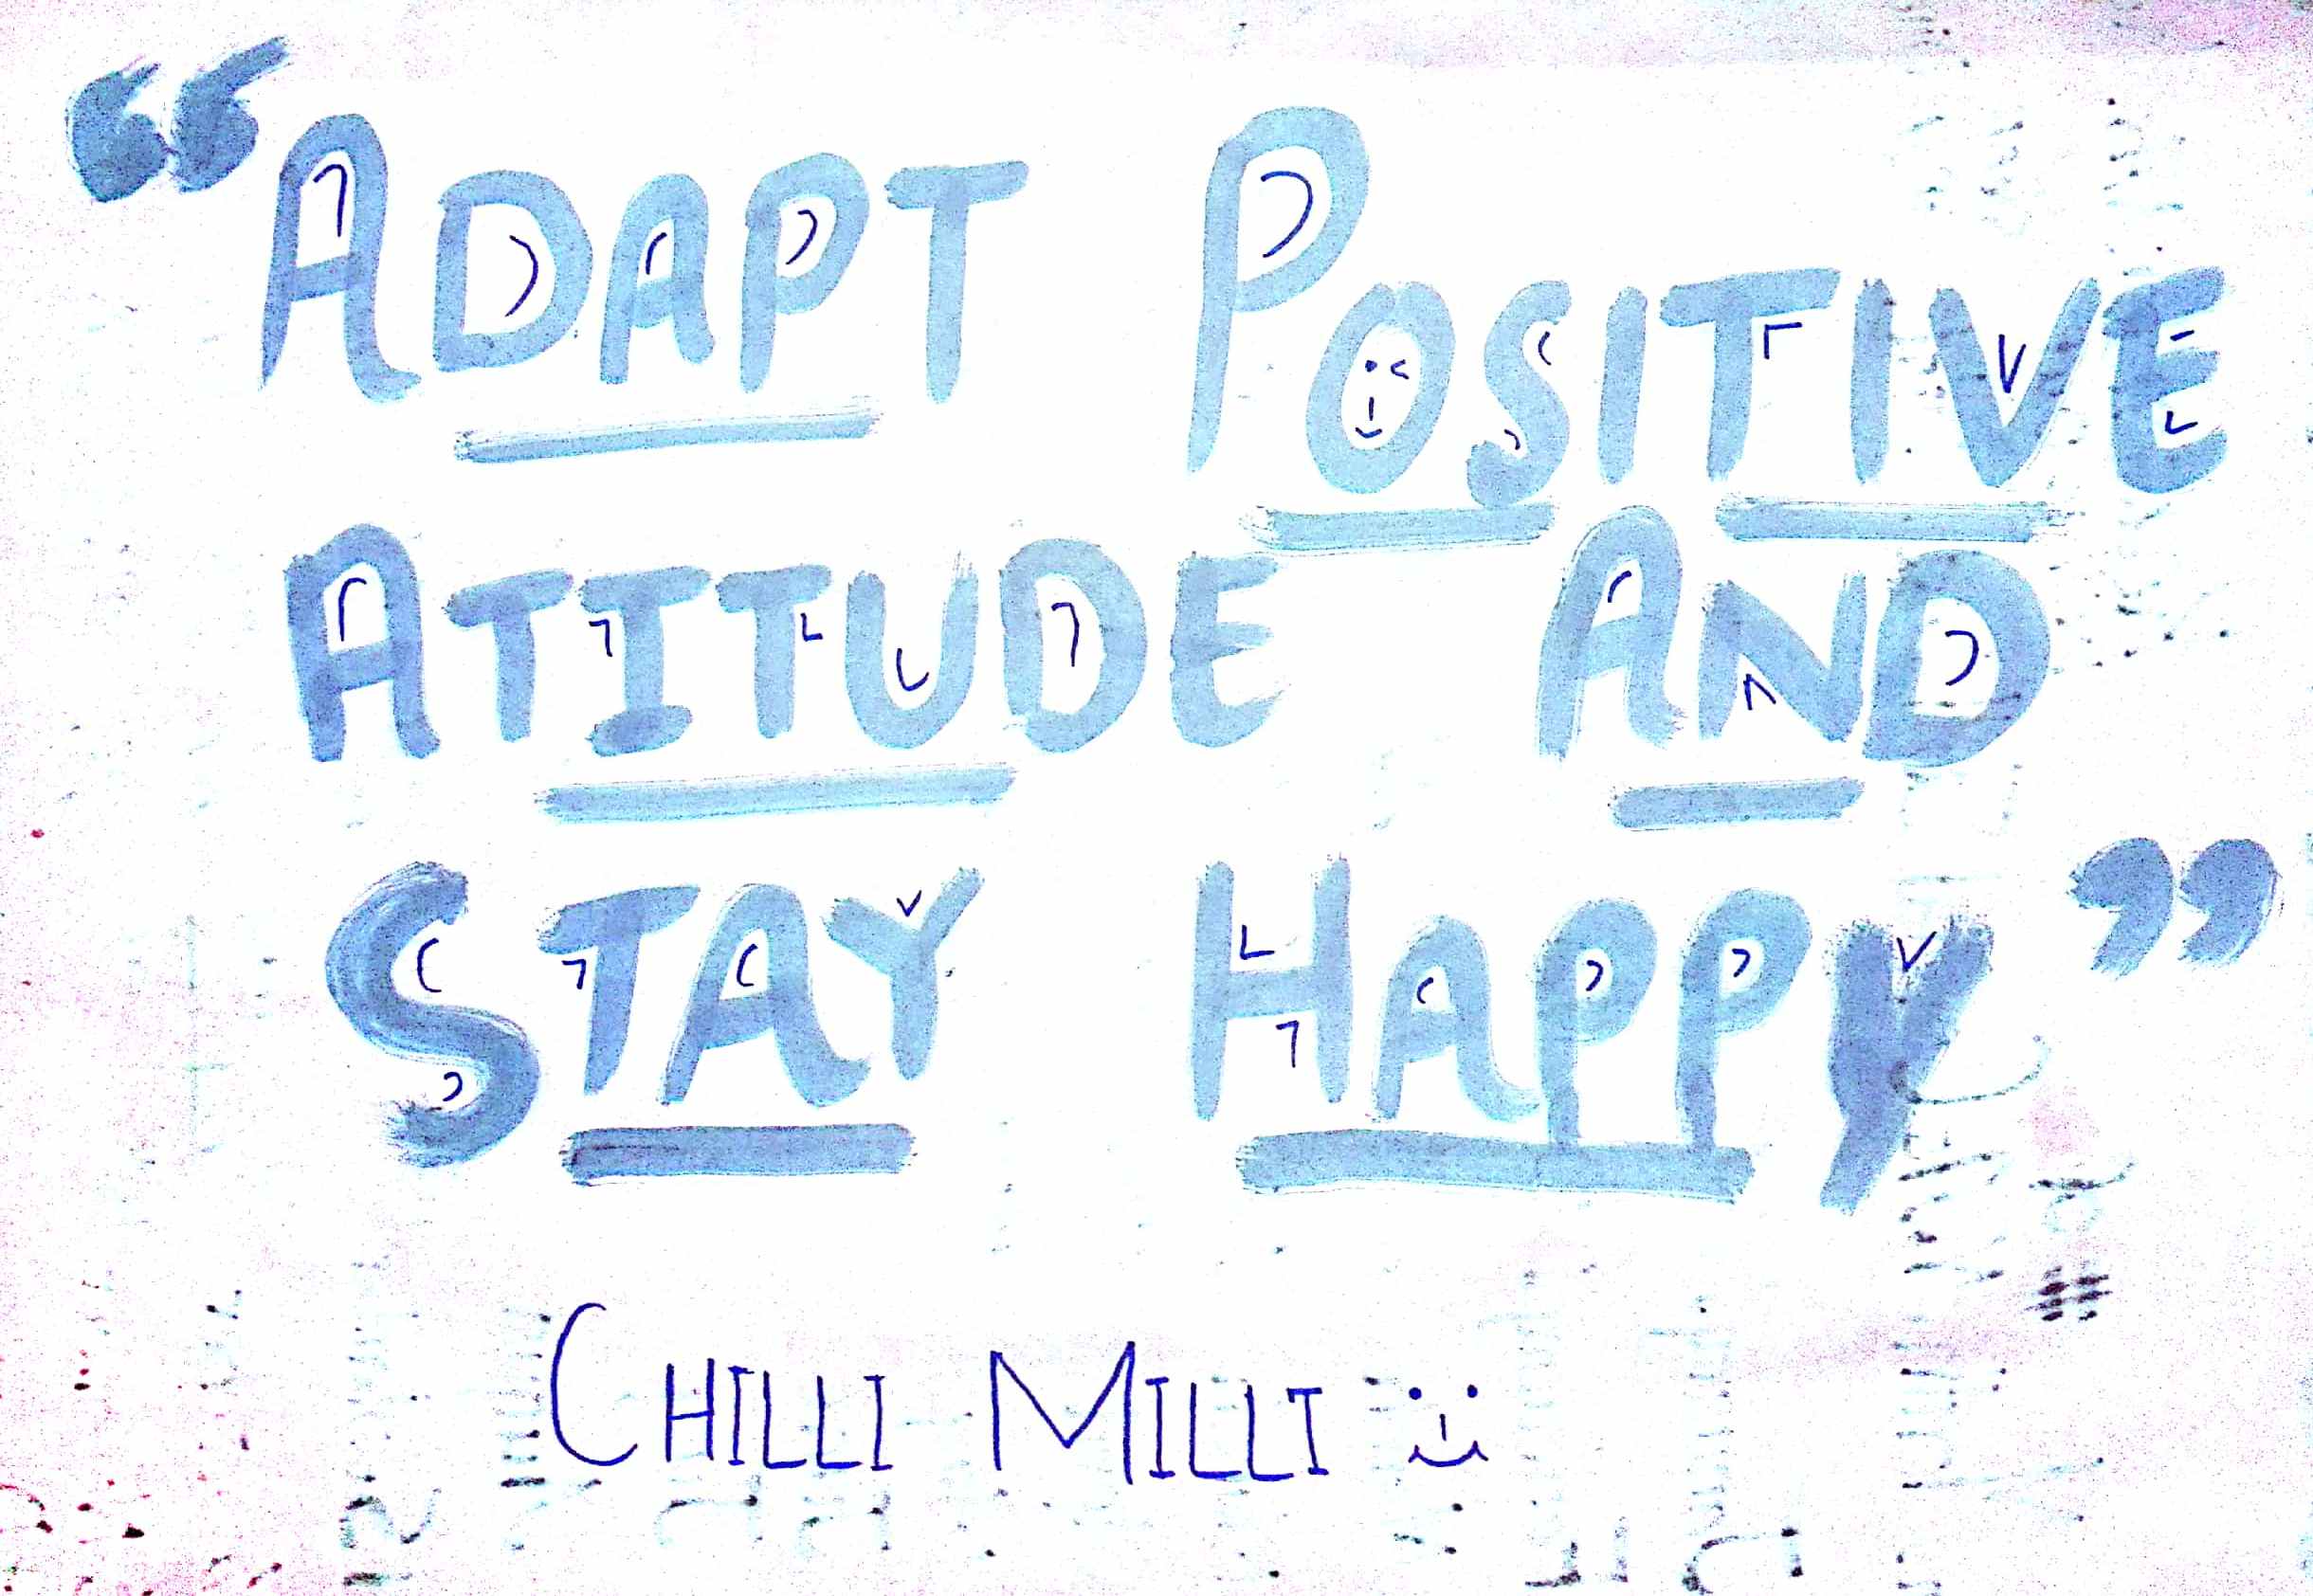 “ADAPT POSITIVE
ATITUDE AND
STAY HAPPY”
CHILLI MILLI